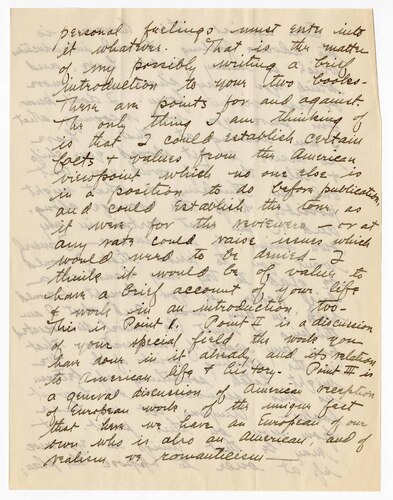 personal feelings must enter into
it whatever. That is the matter
of my possibly writing a brief
introduction to your two books-
There are points for and against.
The only thing I am thinking of
is that I could establish certain
facts + values from the American
viewpoint which no one else is
in a position to do before publication,
and could establish the tone as
it were, for the reviewers - or at
any rate could raise issues which
would need to be denied - I
think it would be of value to
have a brief account of your life
& work in an introduction, too-
This is Point I. Point II is a discussion
of your special field, the work you
have done in it already and its relation
to American life & history. Point III is
a general discussion of American reception
of European work, of the unique fact
that here we have an European of our
own who is also an American, and of
realism vs romanticism -